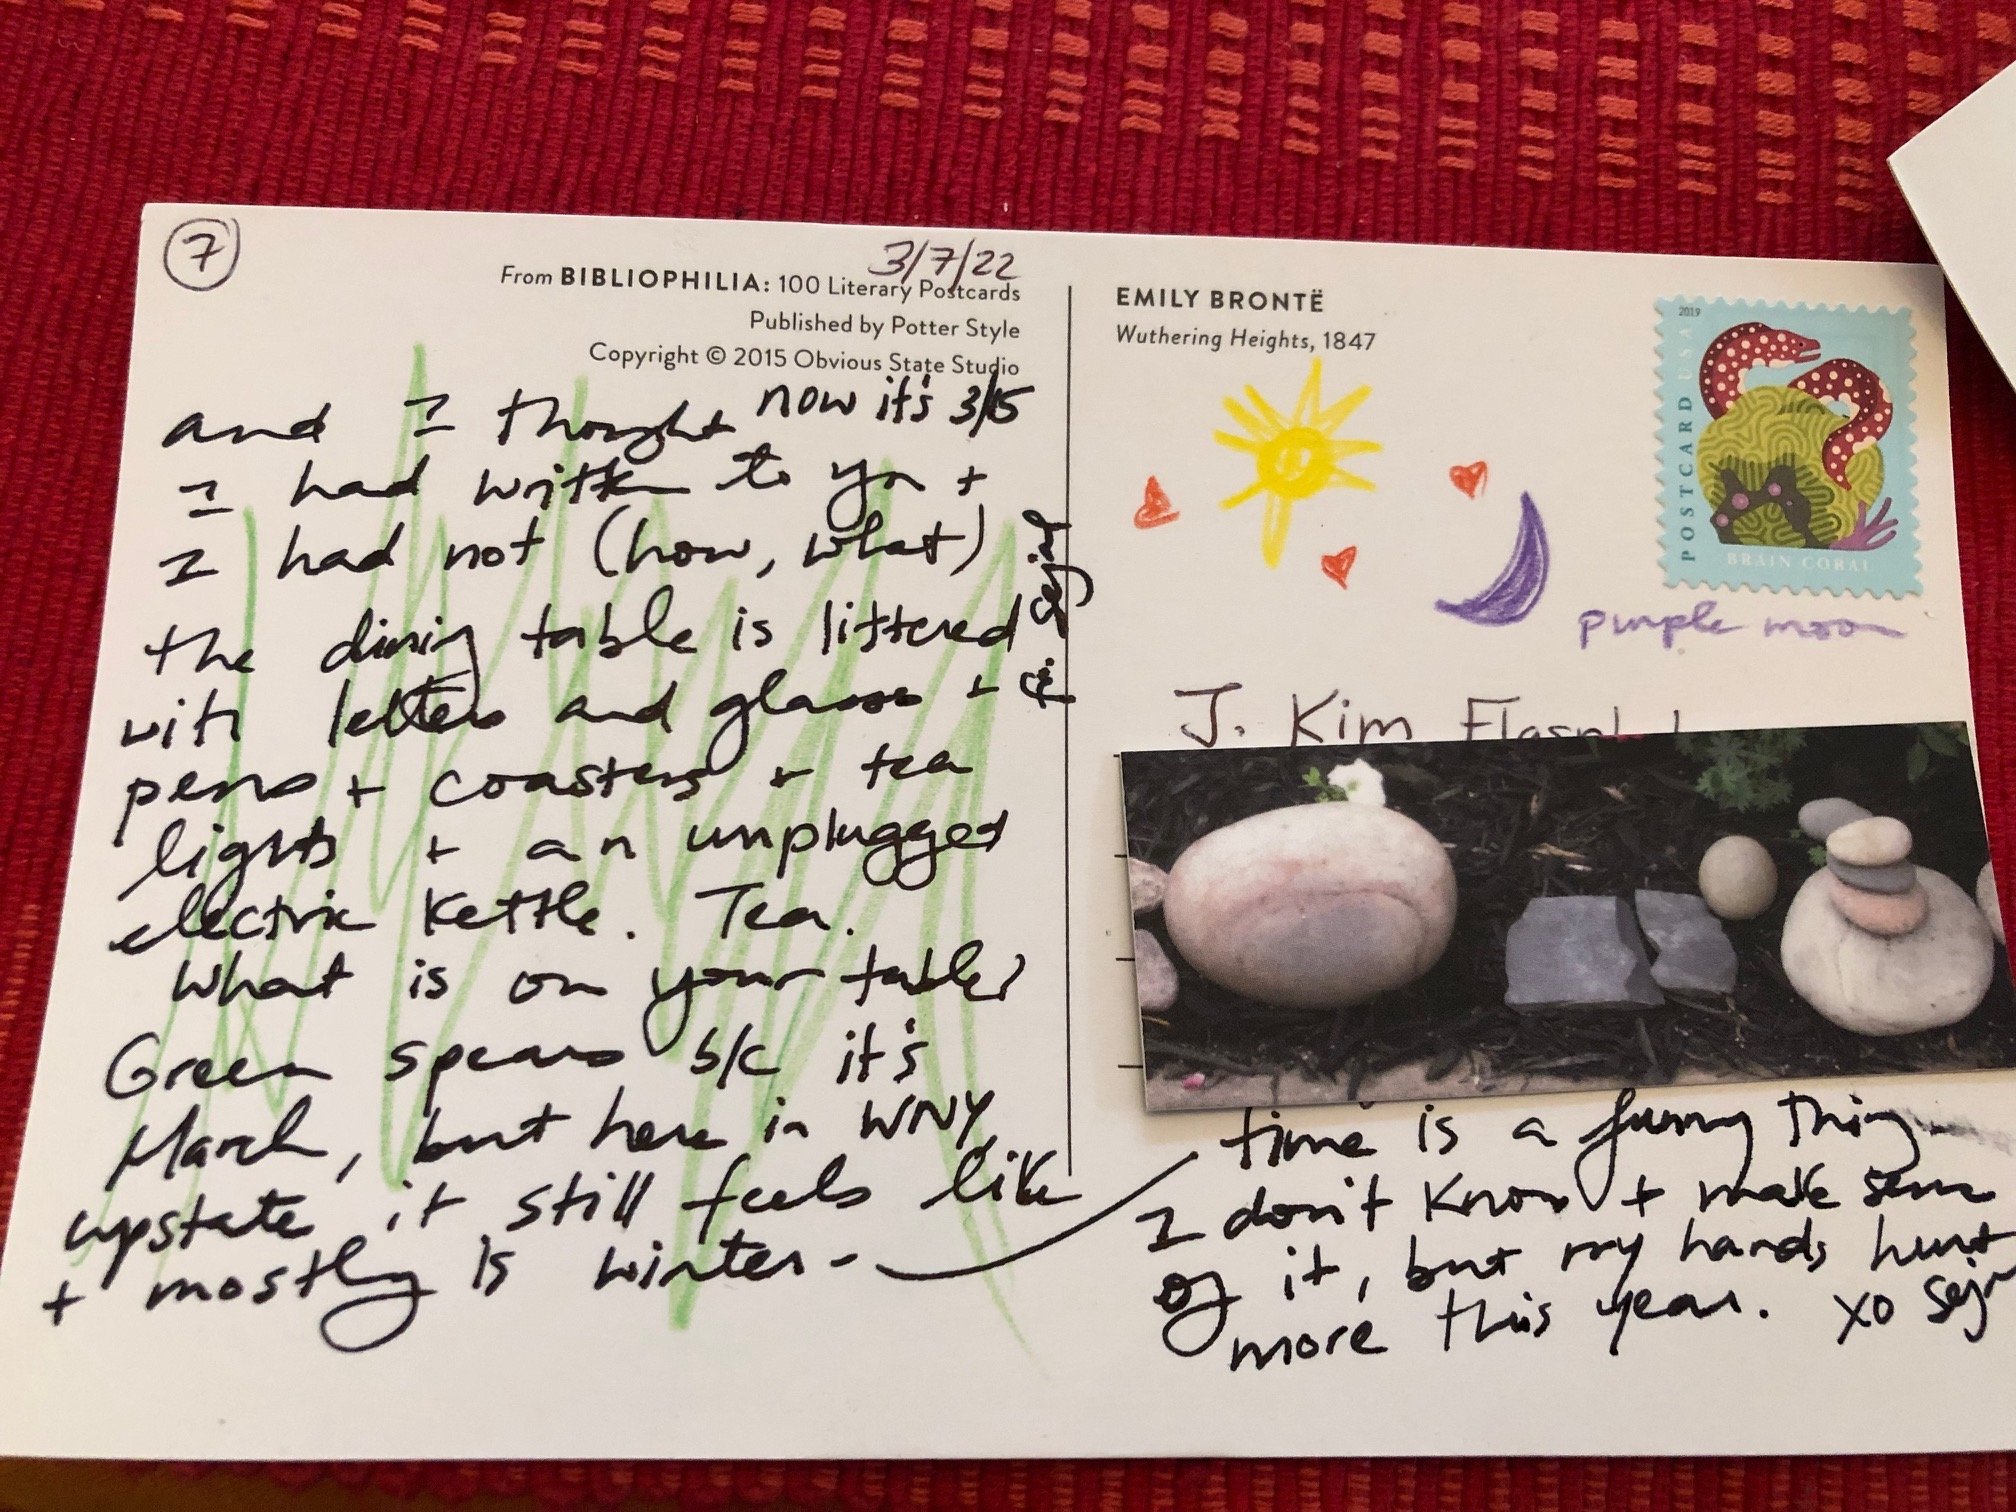 7
3/7/22
From BIBLIOPHILIA: 100 Literary Postcards
Published by Potter Style
Copyright © 2015 Obvious State Studio
now it's 3/15
and I thought
I had written to you +
I had not (how, what)
the dining table is littered
with letters and glasses +
pens + coasters + tea
lights + an unplugged
electric kettle. Tea.
What is on your table?
Green spears b/c it's
March, but here in WNY,
upstate it still feels like
+ mostly is winter-
fr. Sejal
EMILY BRONTË
Wuthering Heights, 1847
2019
POSTCARD USA
BRAIN CORAL
purple moon
J. Kim
time is a funny thing
I don't know + make sense
of it, but my hands hurt
more this year. xo Sej